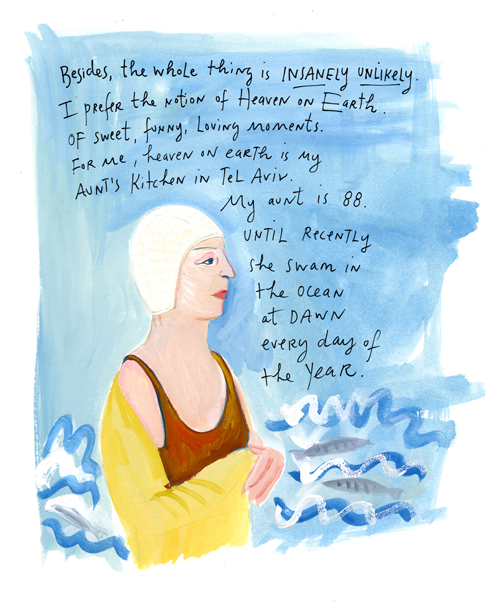 Besides, the whole thing is INSANELY UNLIKELY.
I prefer the notion of Heaven on Earth.
OF sweet, funny, Loving moments.
FOR me, heaven on earth is my
AUNT'S Kitchen in Tel Aviv.
My aunt is 88.
UNTIL Recently
she swam in
the OCEAN
at DAWN
every day of
the YeaR.